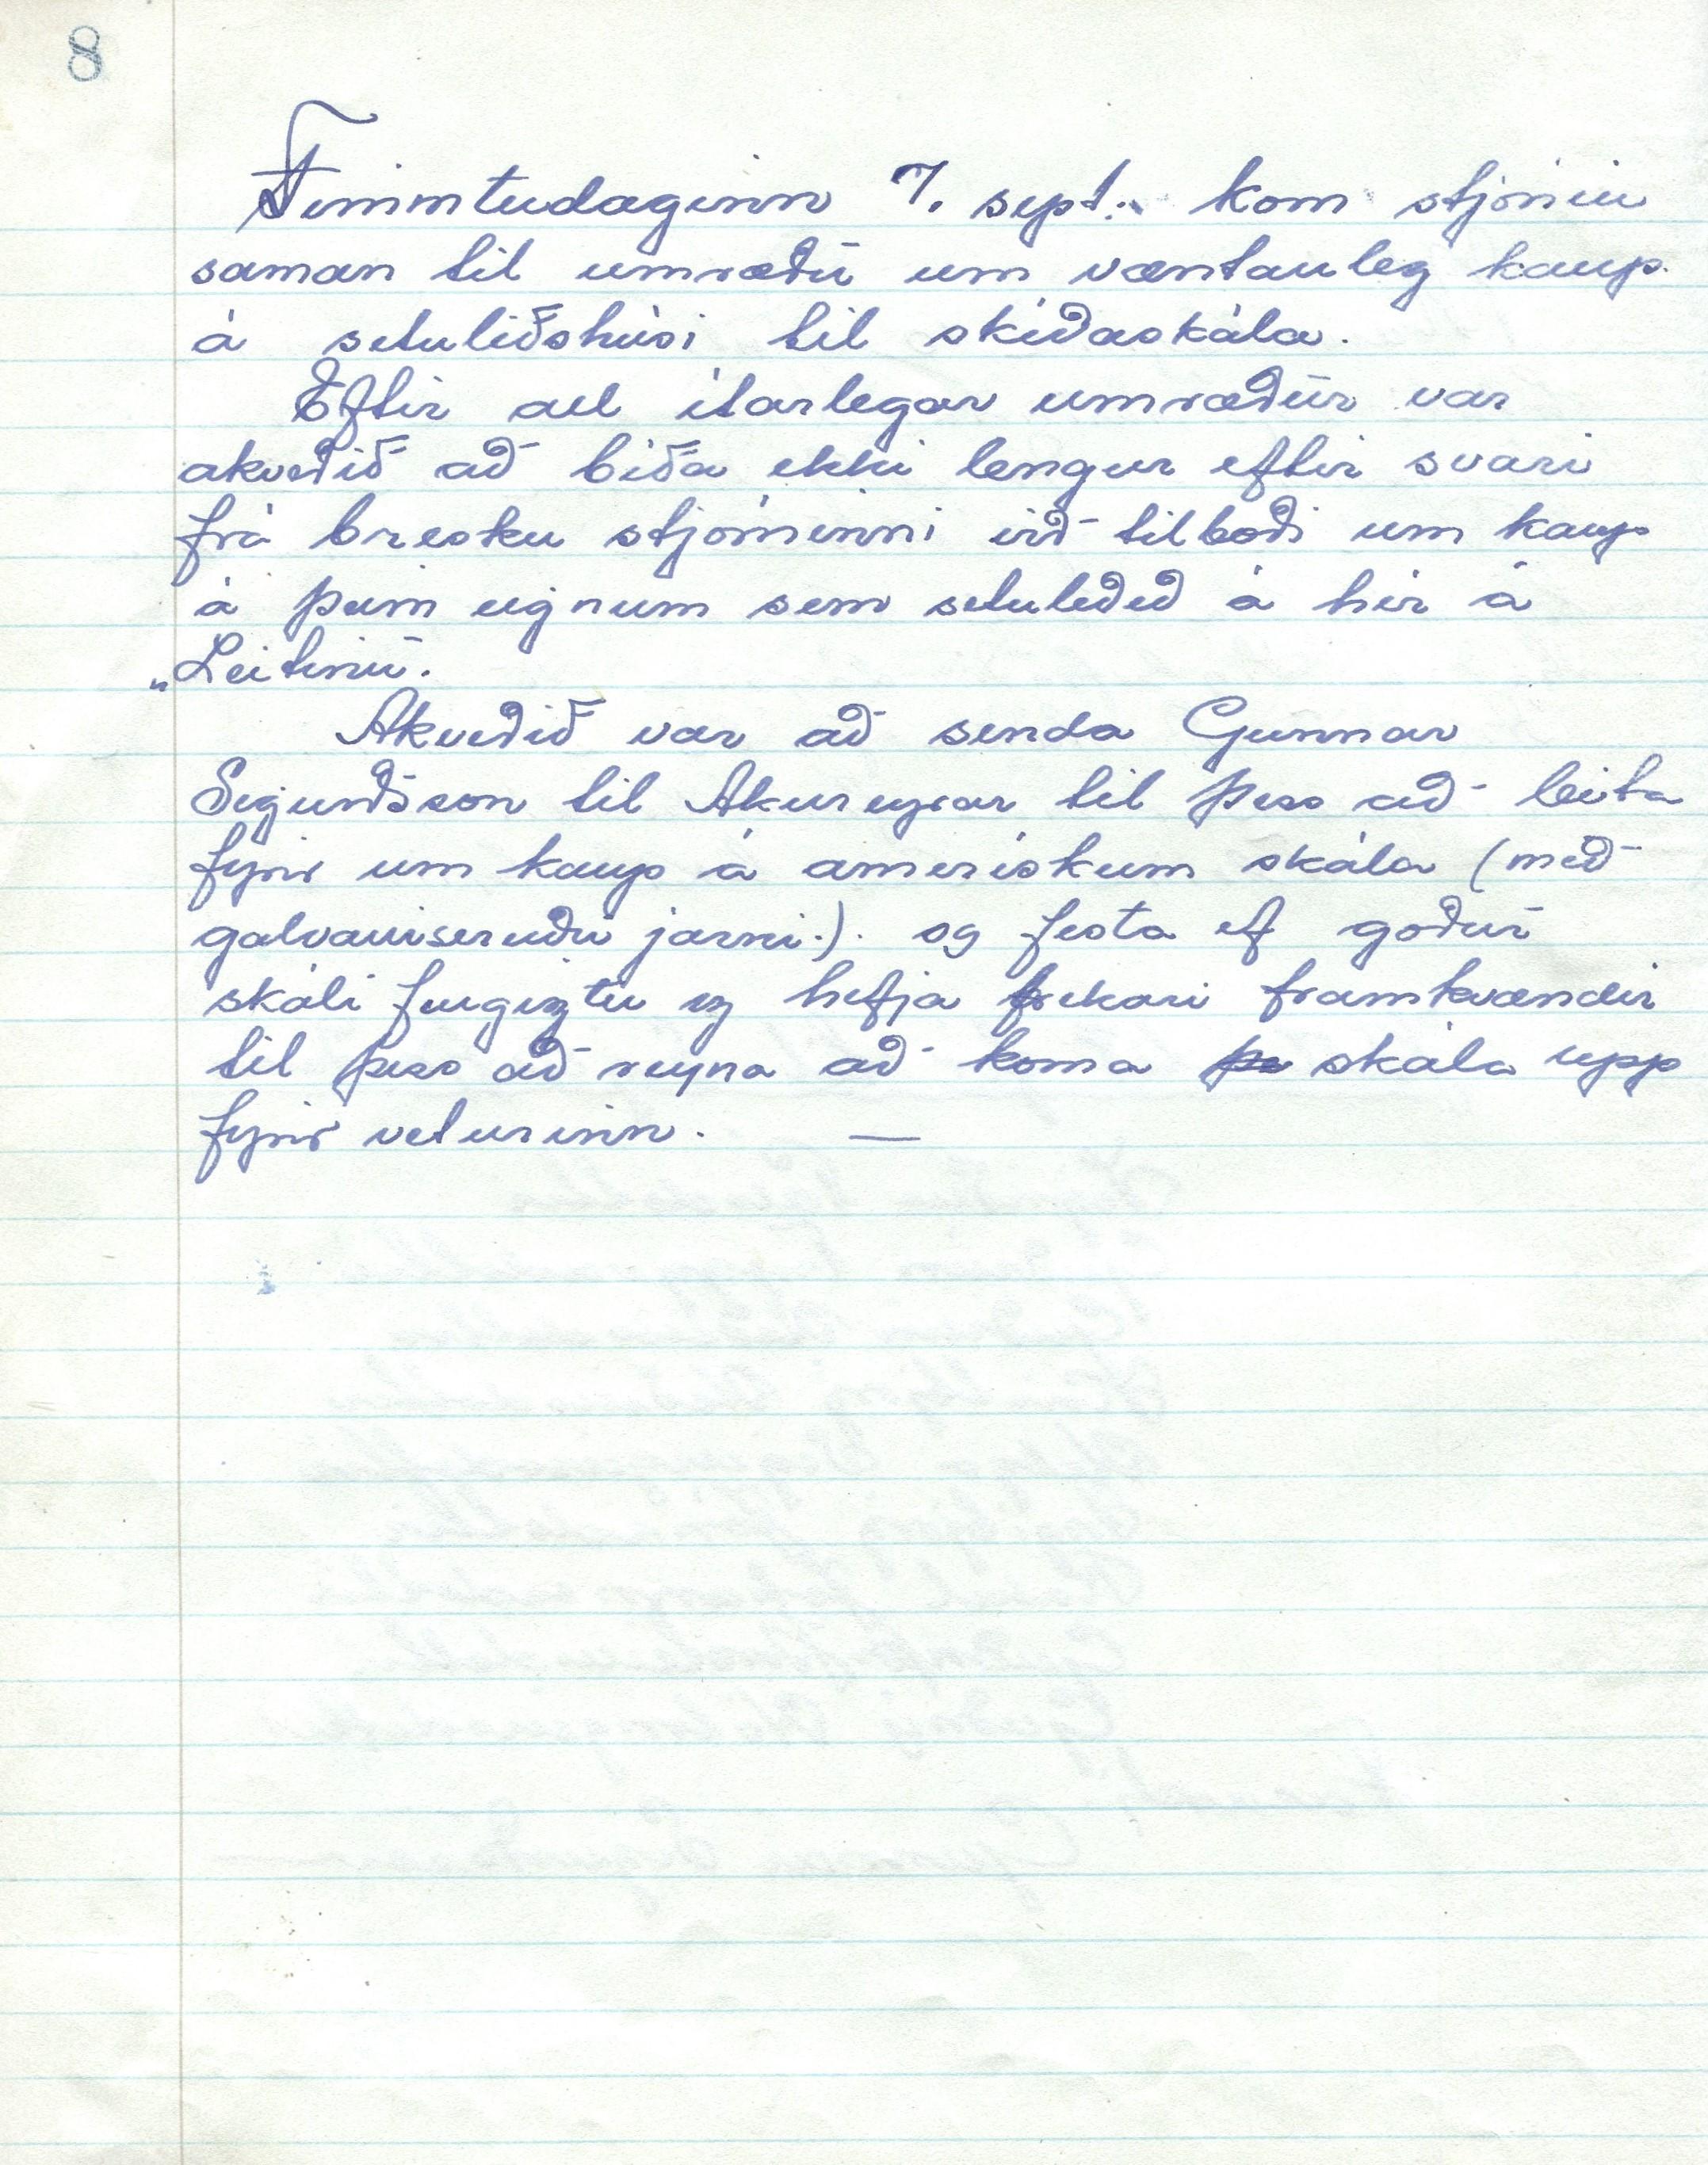 8
Fimmtudaginn 7. sept. kom stjórnin
saman til umræðu um væntanleg kaup
á setuliðshúsi til skíðaskála.
Eftir all ítarlegar umræður var
akveðið að biða ekki lengur eftir svari
frá bresku stjórninni við tilboði um kaup
á þeim eignum sem setuleðeð á hér á
„Leitinu.
Akveðið var að senda Gunnar
Sigurðsson til Akureyrar til þess að leita
fyrir um kaup á amerískum skála (með
galvaniseruðu jarni.). og festa ef goður
skáli fengiztu og hefja frekari framkvæmdir
til þess að reyna að koma skála upp
fyrir veturinn. —